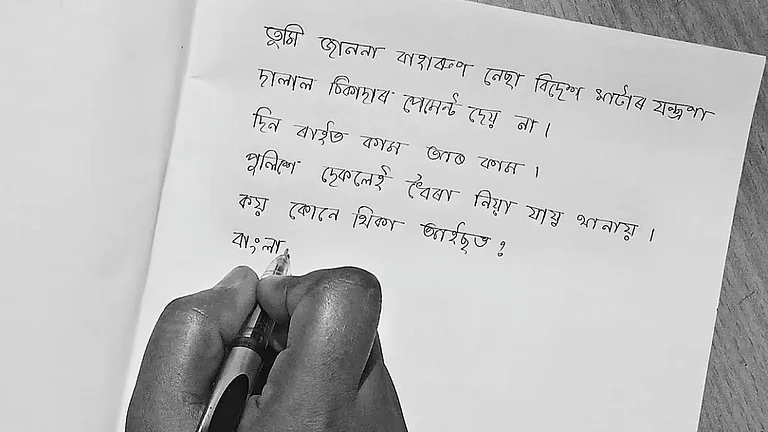 তুমি জাননা বাহারুণ নেছা বিদেশ মাটার যন্ত্রণা
দালাল ঠিকাদার পেমেন্ট দেয় না।
দিন রাইত কাম আর কাম।
পুলিশে দেকলেই ধৈরা নিয়া যায় থানায়।
কয় কোনে থিকা আইছত?
বাংলা